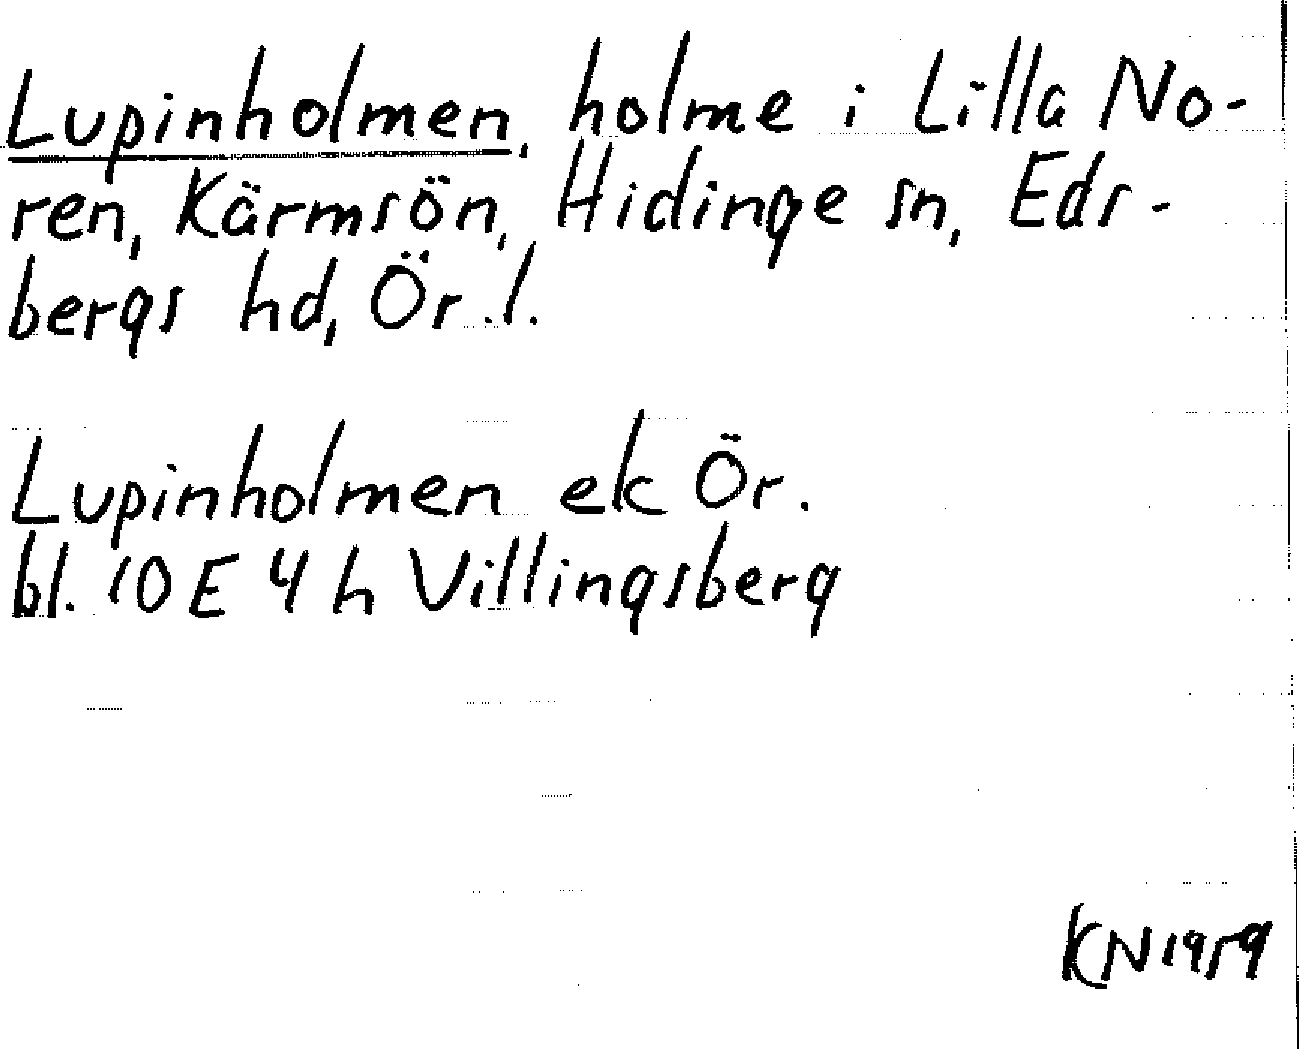 Lupinholmen, holme i Lilla No-
ren, Kärmsön, Hidinge sn, Eds-
bergs hd, Ör. l.
Lupinholmen ek Ör.
bl. 10 E 4 h Villingsberg
KN 1959